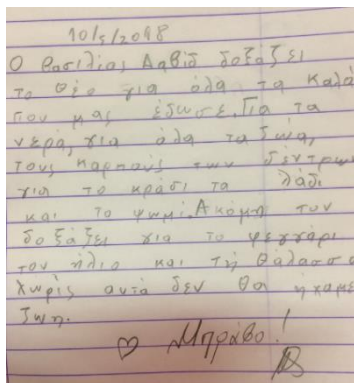 10/5/2018
Ο βασιλιάς Δαβίδ δοξάζει
το θεό για όλα τα καλά
που μας έδωσε. Για τα
νερά, για όλα τα ζώα,
τους καρπούς των δέντρων
για το κράσι τα λάδι
και το ψωμί. Ακόμη τον
δοξάζει για το φεγγάρι
τον ήλιο και τη θάλασσα
χωρίς αυτά δεν θα ήχαμε
ζωη.
♡ Μπράβο!